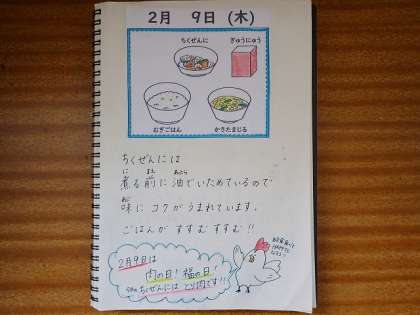 2月 9日 (木)
ちくぜんに
ぎゅうにゅう
むぎごはん
かきたまじる
ちくぜんには
煮る前に油でいためているので
味にコクがうまれています。
ごはんが すすむ すすむ!!
2月9日は
肉の日! 福の日!
ちくぜんには とり肉です!!